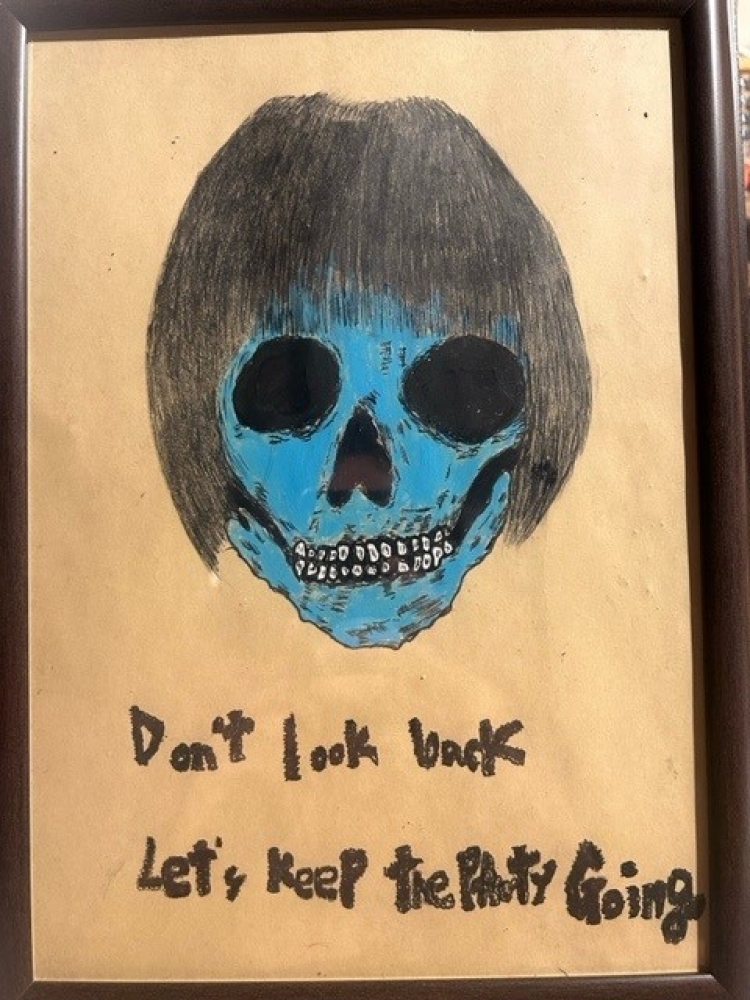 Don't look back
Let's Keep the PArty Going